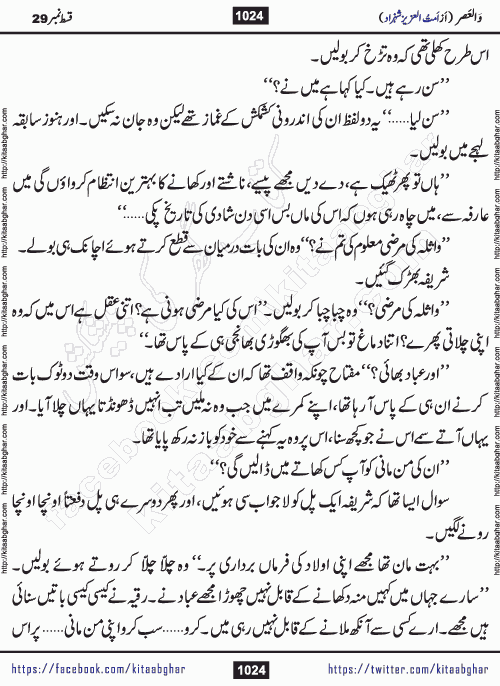 وَالعَصر (اَز اَمتُ العزیز شہزاد)
1024
قسط نمبر 29
اس طرح کھلی تھی کہ وہ تڑخ کر بولیں۔
’’سن رہے ہیں۔ کیا کہا ہے میں نے؟‘‘
’’سن لیا......‘‘ یہ دو لفظ ان کی اندرونی کشمکش کے غماز تھے لیکن وہ جان نہ سکیں۔ اور ہنوز سابقہ
لہجے میں بولیں۔
’’ہاں تو پھر ٹھیک ہے، دے دیں مجھے پیسے، ناشتے اور کھانے کا بہترین انتظام کرواؤں گی میں
عارفہ سے، میں چاہ رہی ہوں کہ اس کی ماں بس اسی دن شادی کی تاریخ پکی......‘‘
’’واثلہ کی مرضی معلوم کی تم نے؟‘‘ وہ ان کی بات درمیان سے قطع کرتے ہوئے اچانک ہی بولے۔
شریفہ بھڑک گئیں۔
’’واثلہ کی مرضی؟‘‘ وہ چبا چبا کر بولیں۔ ’’اس کی کیا مرضی ہونی ہے؟ اتنی عقل ہے اس میں کہ وہ
اپنی چلاتی پھرے؟ اتنا دماغ تو بس آپ کی بھگوڑی بھانجی ہی کے پاس تھا۔‘‘
’’اور عباد بھائی؟‘‘ مفتاح چونکہ واقف تھا کہ ان کے کیا ارادے ہیں، سو اس وقت دو ٹوک بات
کرنے ان ہی کے پاس آ رہا تھا، اپنے کمرے میں جب وہ نہ ملیں تب انہیں ڈھونڈتا یہاں چلا آیا۔ اور
یہاں آتے سے اس نے جو کچھ سنا، اس پر وہ یہ کہنے سے خود کو باز نہ رکھ پایا تھا۔
’’ان کی من مانی کو آپ کس کھاتے میں ڈالیں گی؟‘‘
سوال ایسا تھا کہ شریفہ ایک پل کو لا جواب سی ہوئیں، اور پھر دوسرے ہی پل دفعتاً اونچا اونچا
رونے لگیں۔
’’بہت مان تھا مجھے اپنی اولاد کی فرماں برداری پر۔‘‘ وہ چلّا چلّا کر روتے ہوئے بولیں۔
’’سارے جہاں میں کہیں منہ دکھانے کے قابل نہیں چھوڑا مجھے عباد نے۔ رقیہ نے کیسی کیسی باتیں سنائی
ہیں مجھے۔ ارے کسی سے آنکھ ملانے کے قابل نہیں رہی میں۔ کرو......سب کرو اپنی من مانی.....پر اس
https://facebook.com/kitaabghar
1024
https://twitter.com/kitaabghar
http://kitaabghar.com